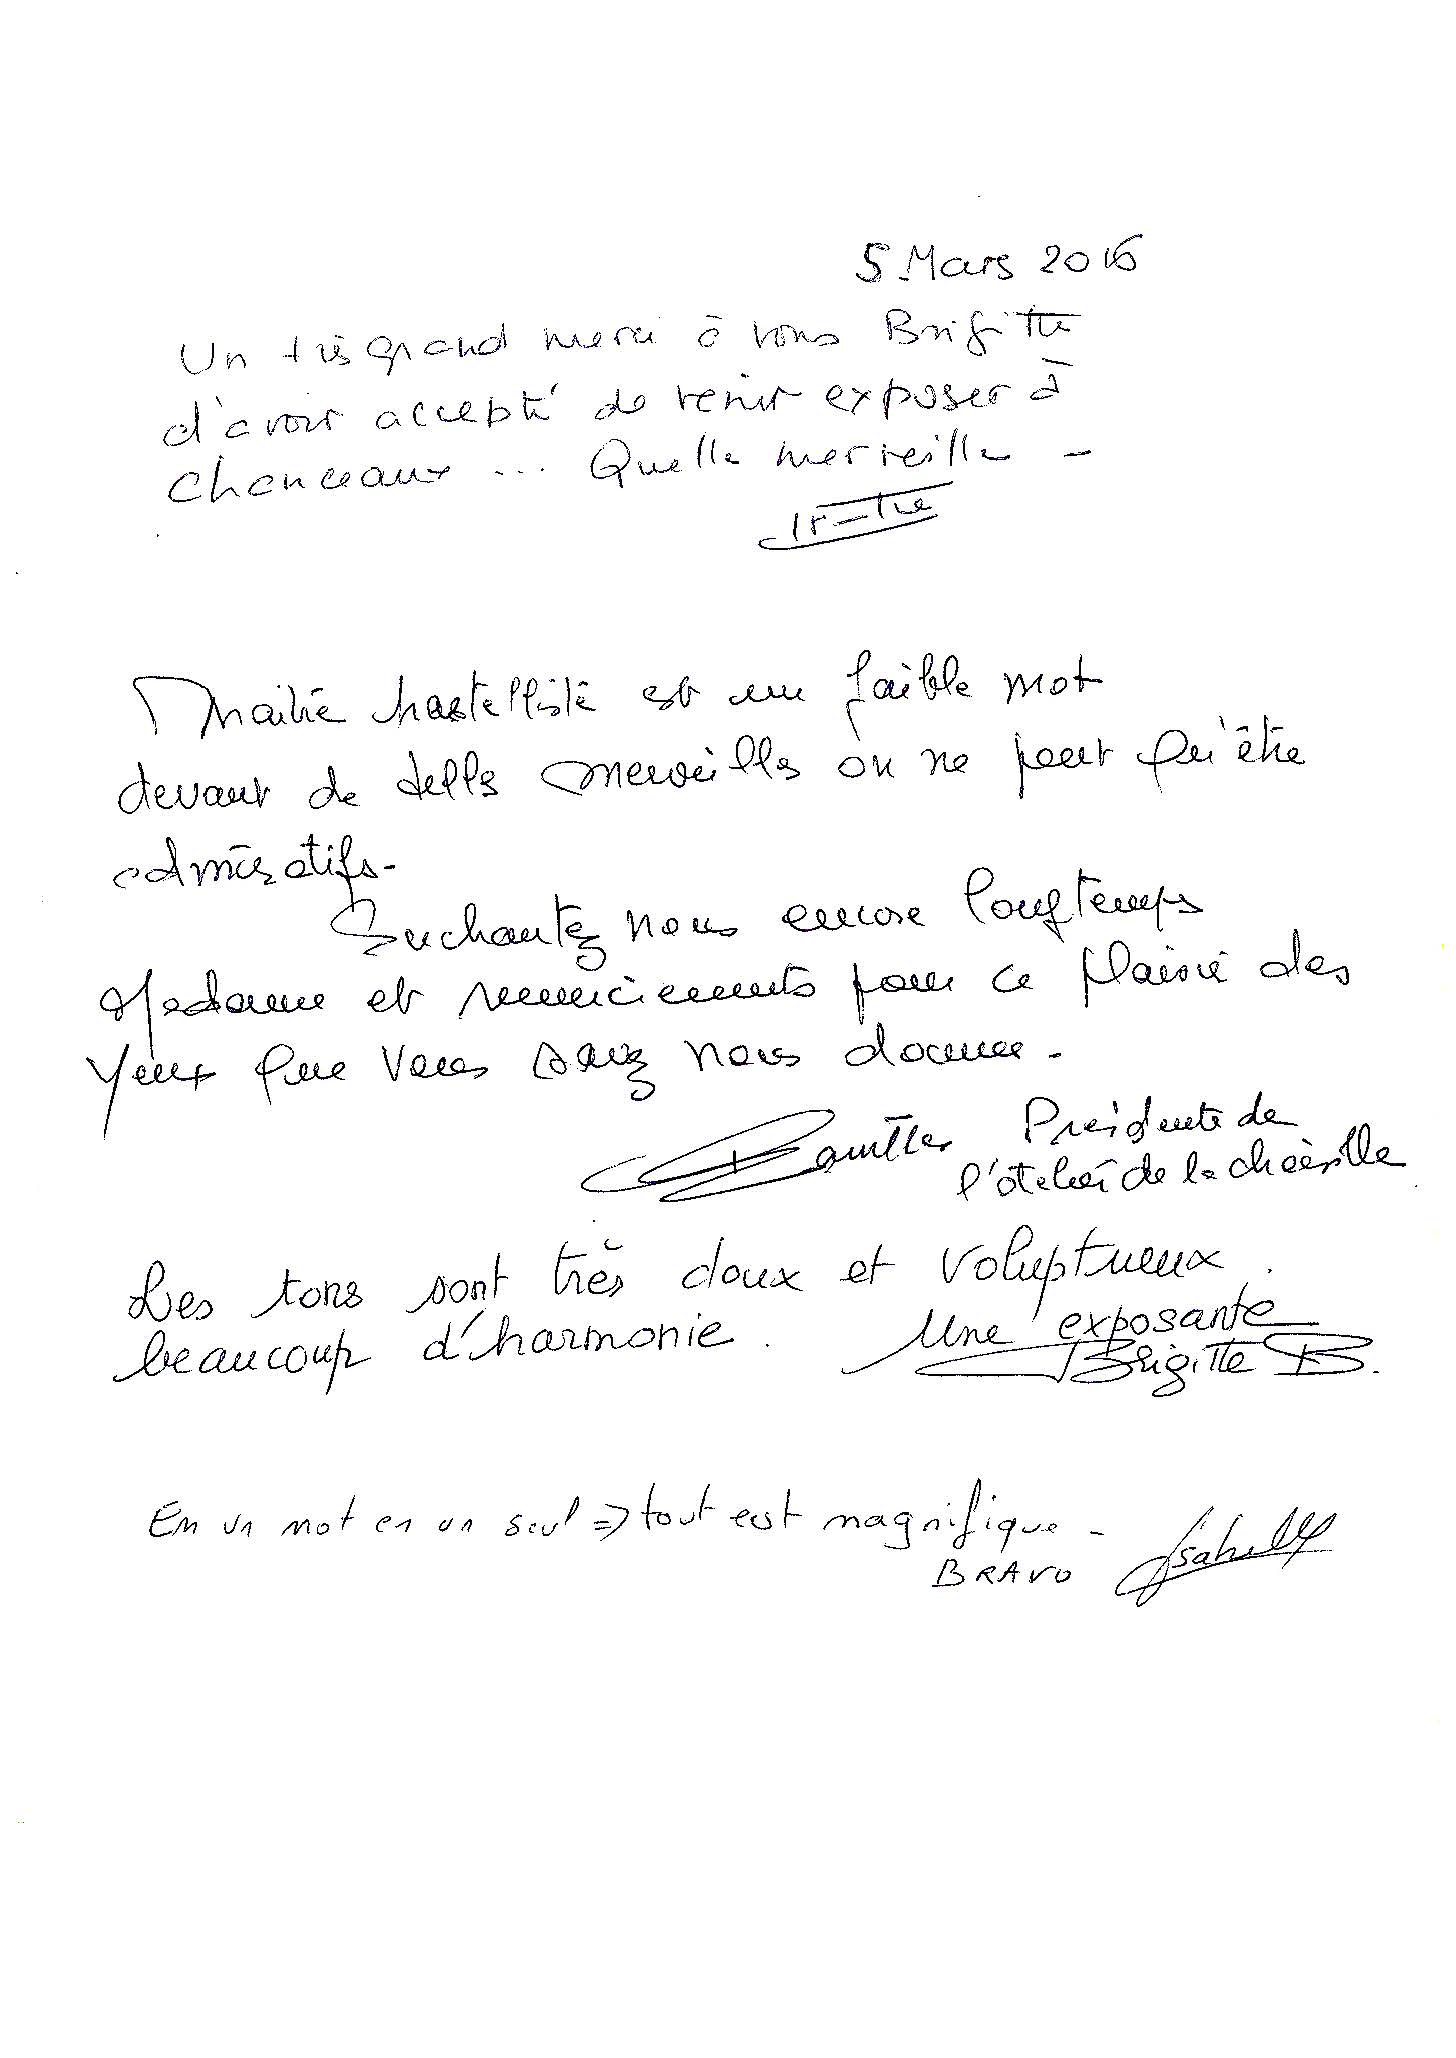 5 Mars 2016
Un très grand merci à vous Brigitte
d'avoir accepté de venir exposer à
Chanceaux ... Quelle merveille -
Maître pastelliste est un faible mot
devant de telles merveilles on ne peut qu'être
admiratifs-
Enchantez nous encore longtemps
Madame et remerciements pour ce plaisir des
yeux que vous savez nous donner -
Présidente de
l'atelier de la
Les tons sont très doux et voluptueux.
beaucoup d'harmonie.
Une exposante
Brigitte B.
En un mot en un seul => tout est magnifique -
BRAVO Isabelle